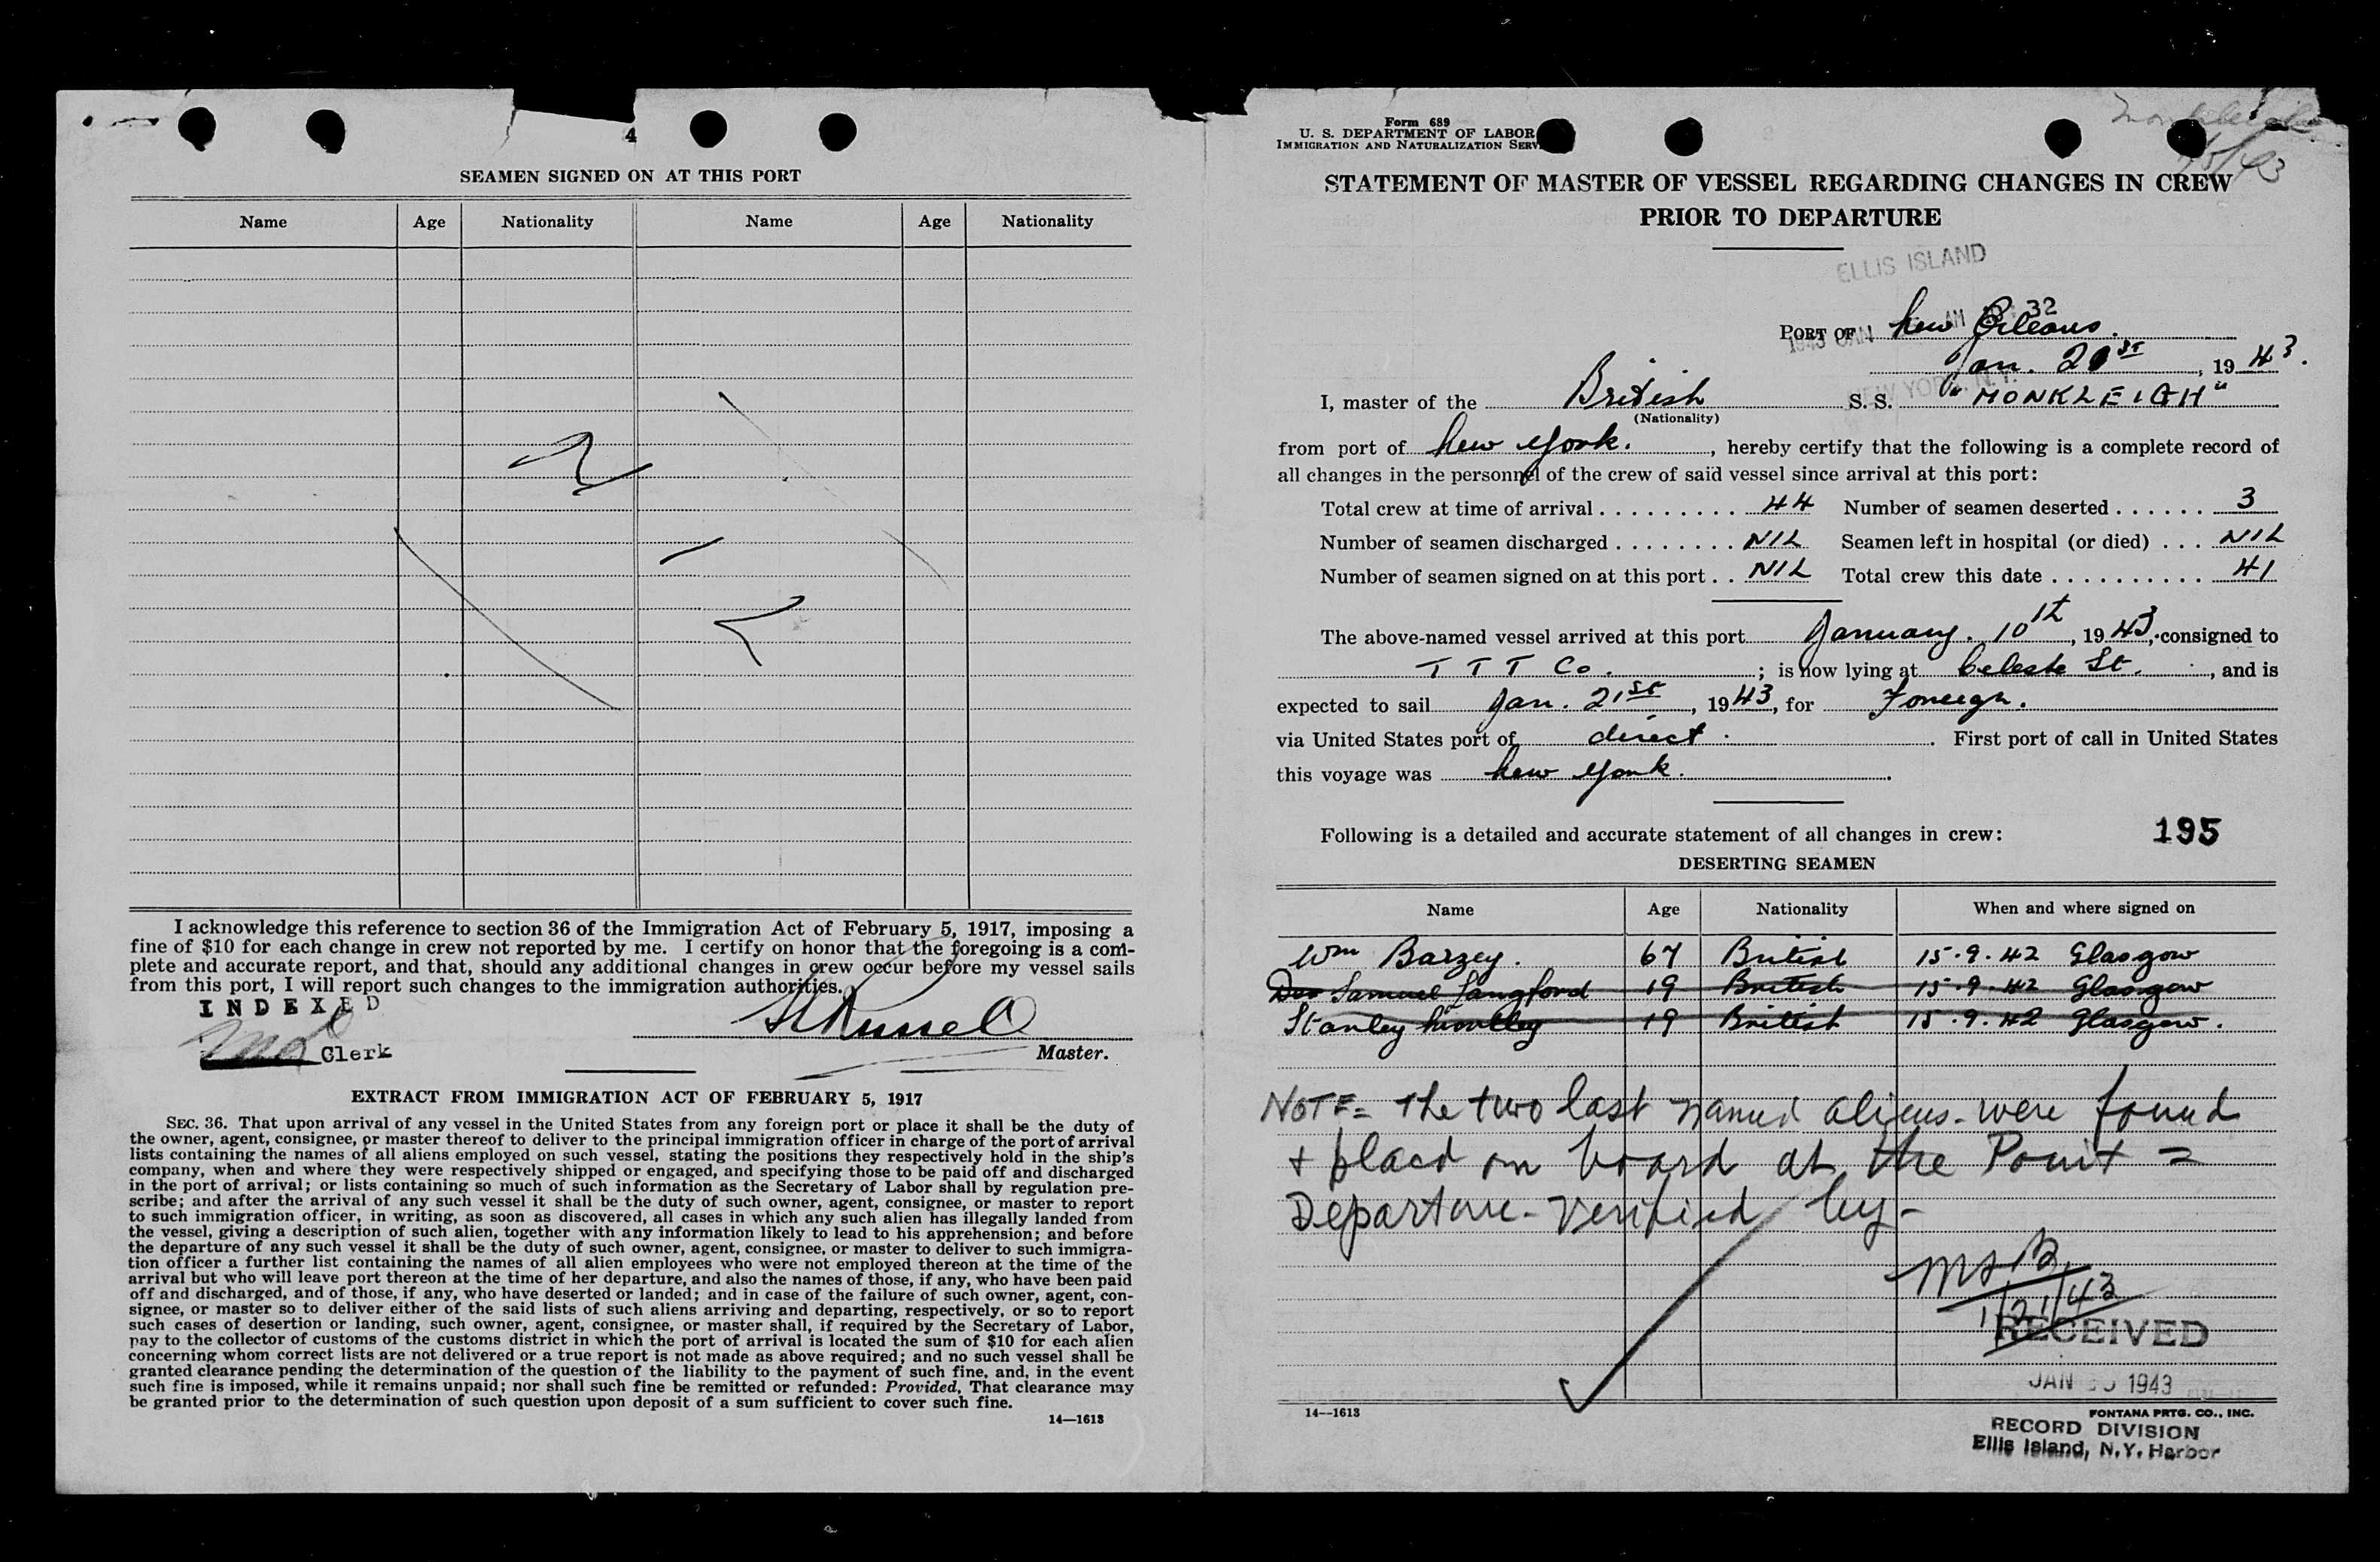 4
SEAMEN SIGNED ON AT THIS PORT
Name Age Nationality Name Age Nationality
NIL
I acknowledge this reference to section 36 of the Immigration Act of February 5, 1917, imposing a
fine of $10 for each change in crew not reported by me. I certify on honor that the foregoing is a com-
plete and accurate report, and that, should any additional changes in crew occur before my vessel sails
from this port, I will report such changes to the immigration authorities.
INDEXED
Clerk
Russell
Master.
EXTRACT FROM IMMIGRATION ACT OF FEBRUARY 5, 1917
SEC. 36. That upon arrival of any vessel in the United States from any foreign port or place it shall be the duty of
the owner, agent, consignee, or master thereof to deliver to the principal immigration officer in charge of the port of arrival
lists containing the names of all aliens employed on such vessel, stating the positions they respectively hold in the ship's
company, when and where they were respectively shipped or engaged, and specifying those to be paid off and discharged
in the port of arrival; or lists containing so much of such information as the Secretary of Labor shall by regulation pre-
scribe; and after the arrival of any such vessel it shall be the duty of such owner, agent, consignee, or master to report
to such immigration officer, in writing, as soon as discovered, all cases in which any such alien has illegally landed from
the vessel, giving a description of such alien, together with any information likely to lead to his apprehension; and before
the departure of any such vessel it shall be the duty of such owner, agent, consignee, or master to deliver to such immigra-
tion officer a further list containing the names of all alien employees who were not employed thereon at the time of the
arrival but who will leave port thereon at the time of her departure, and also the names of those, if any, who have been paid
off and discharged, and of those, if any, who have deserted or landed; and in case of the failure of such owner, agent, con-
signee, or master so to deliver either of the said lists of such aliens arriving and departing, respectively, or so to report
such cases of desertion or landing, such owner, agent, consignee, or master shall, if required by the Secretary of Labor,
pay to the collector of customs of the customs district in which the port of arrival is located the sum of $10 for each alien
concerning whom correct lists are not delivered or a true report is not made as above required; and no such vessel shall be
granted clearance pending the determination of the question of the liability to the payment of such fine, and, in the event
such fine is imposed, while it remains unpaid; nor shall such fine be remitted or refunded: Provided, That clearance may
be granted prior to the determination of such question upon deposit of a sum sufficient to cover such fine.
14—1613
Form 689
U. S. DEPARTMENT OF LABOR
IMMIGRATION AND NATURALIZATION SERV
STATEMENT OF MASTER OF VESSEL REGARDING CHANGES IN CREW
PRIOR TO DEPARTURE
ELLIS ISLAND
PORT OF New Orleans.
Jan. 21st, 1943.
NEW YORK, N.Y.
I, master of the British S. S. "MONKLEIGH"
(Nationality)
from port of New York., hereby certify that the following is a complete record of
all changes in the personnel of the crew of said vessel since arrival at this port:
Total crew at time of arrival . . . . . . . . . . 44 Number of seamen deserted . . . . . . 3
Number of seamen discharged . . . . . . . . NIL Seamen left in hospital (or died) . . . NIL
Number of seamen signed on at this port . . NIL Total crew this date . . . . . . . . . . 41
The above-named vessel arrived at this port January. 10th, 1943, consigned to
T T T Co. ; is now lying at Celeste St., and is
expected to sail Jan. 21st, 1943, for Foreign.
via United States port of direct. First port of call in United States
this voyage was New York.
Following is a detailed and accurate statement of all changes in crew: 195
DESERTING SEAMEN
Name Age Nationality When and where signed on
Wm Barzey. 67 British 15.9.42 Glasgow
Samuel Langford 19 British 15.9.42 Glasgow
Stanley 19 British 15.9.42 Glasgow.
NOTE= The two last named aliens were found
+ placd on board at the Point =
Departure verified by-
MSB
1/21/43
RECEIVED
JAN 1943
14—1613
FONTANA PRTG. CO., INC.
RECORD DIVISION
Ellis Island, N.Y. Harbor